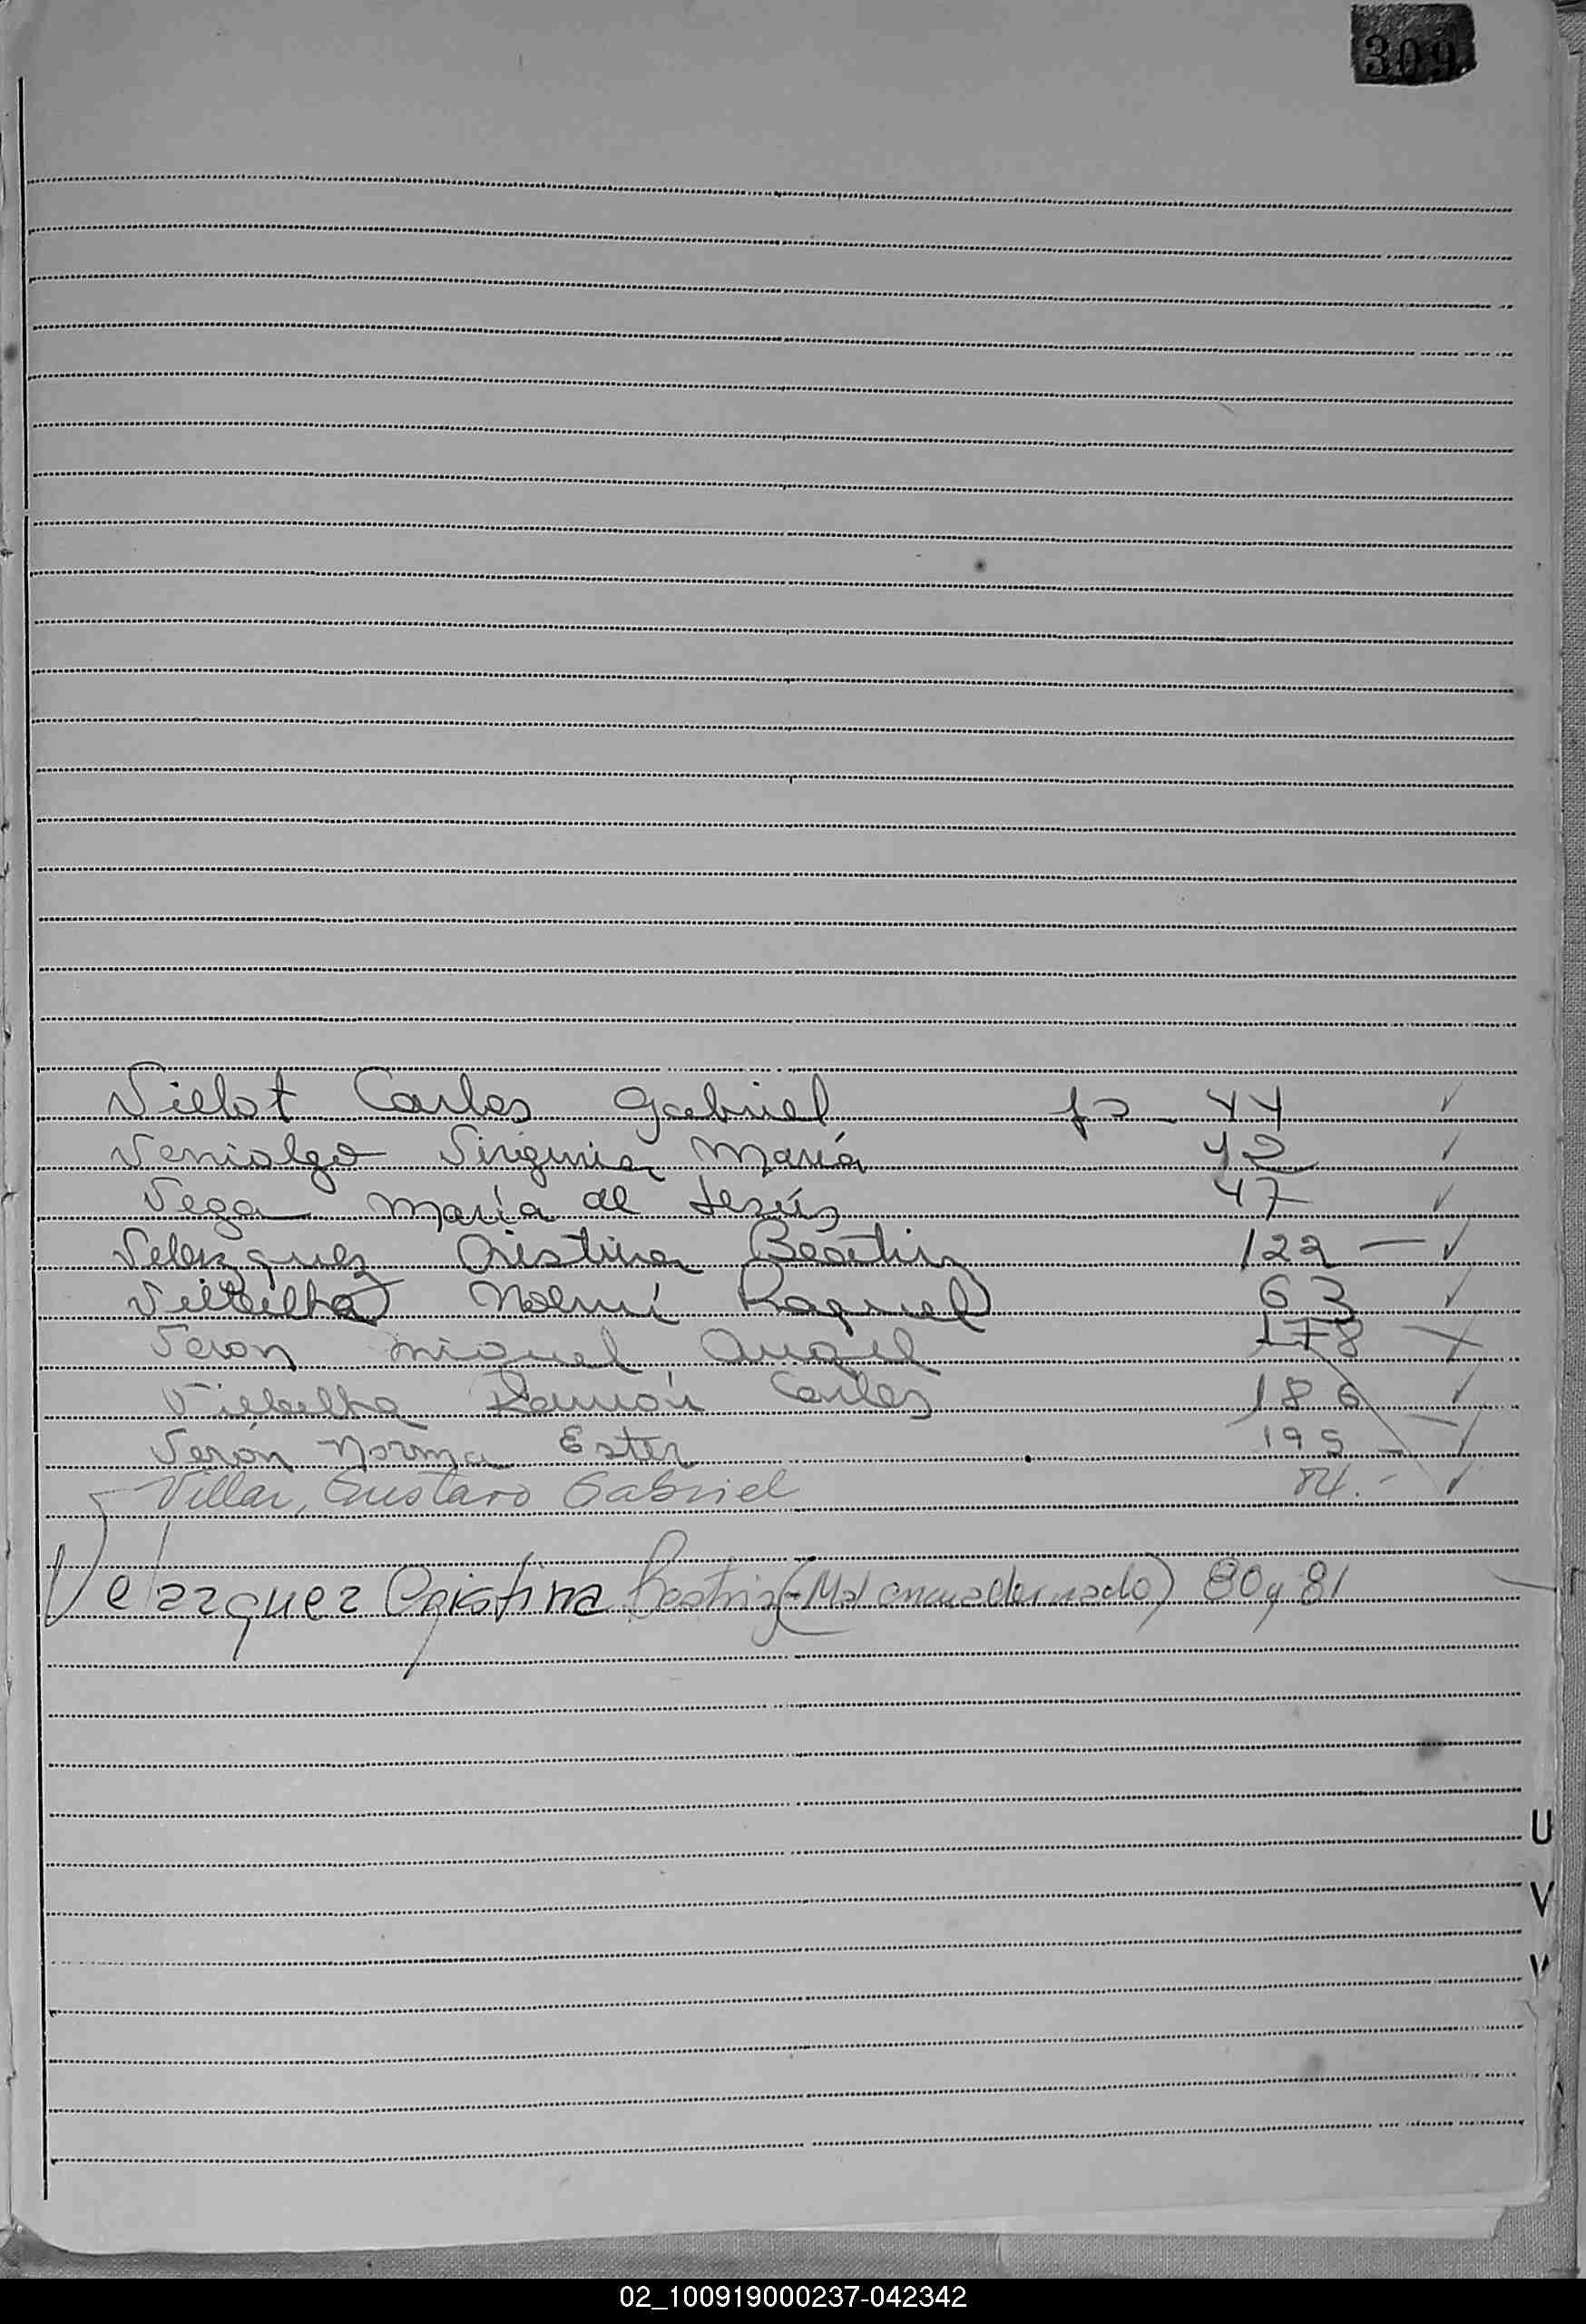 309
Villot Carlos Gabriel fs - 44 ✓
Venialgo Virginia María 42 ✓
Vega María de Jesús 47 ✓
Velazquez Cristina Beatriz 122 — ✓
Noemí Raquel 63 ✓
Veron Miguel Angel 178
Ramón Carlos 186 ✓
Verón Norma Ester 195 - ✓
Villar, Gustavo Gabriel 84.- ✓
Velazquez Cristina Beatriz (Mal encuadernado) 80 y 81
U
V
02_100919000237-042342